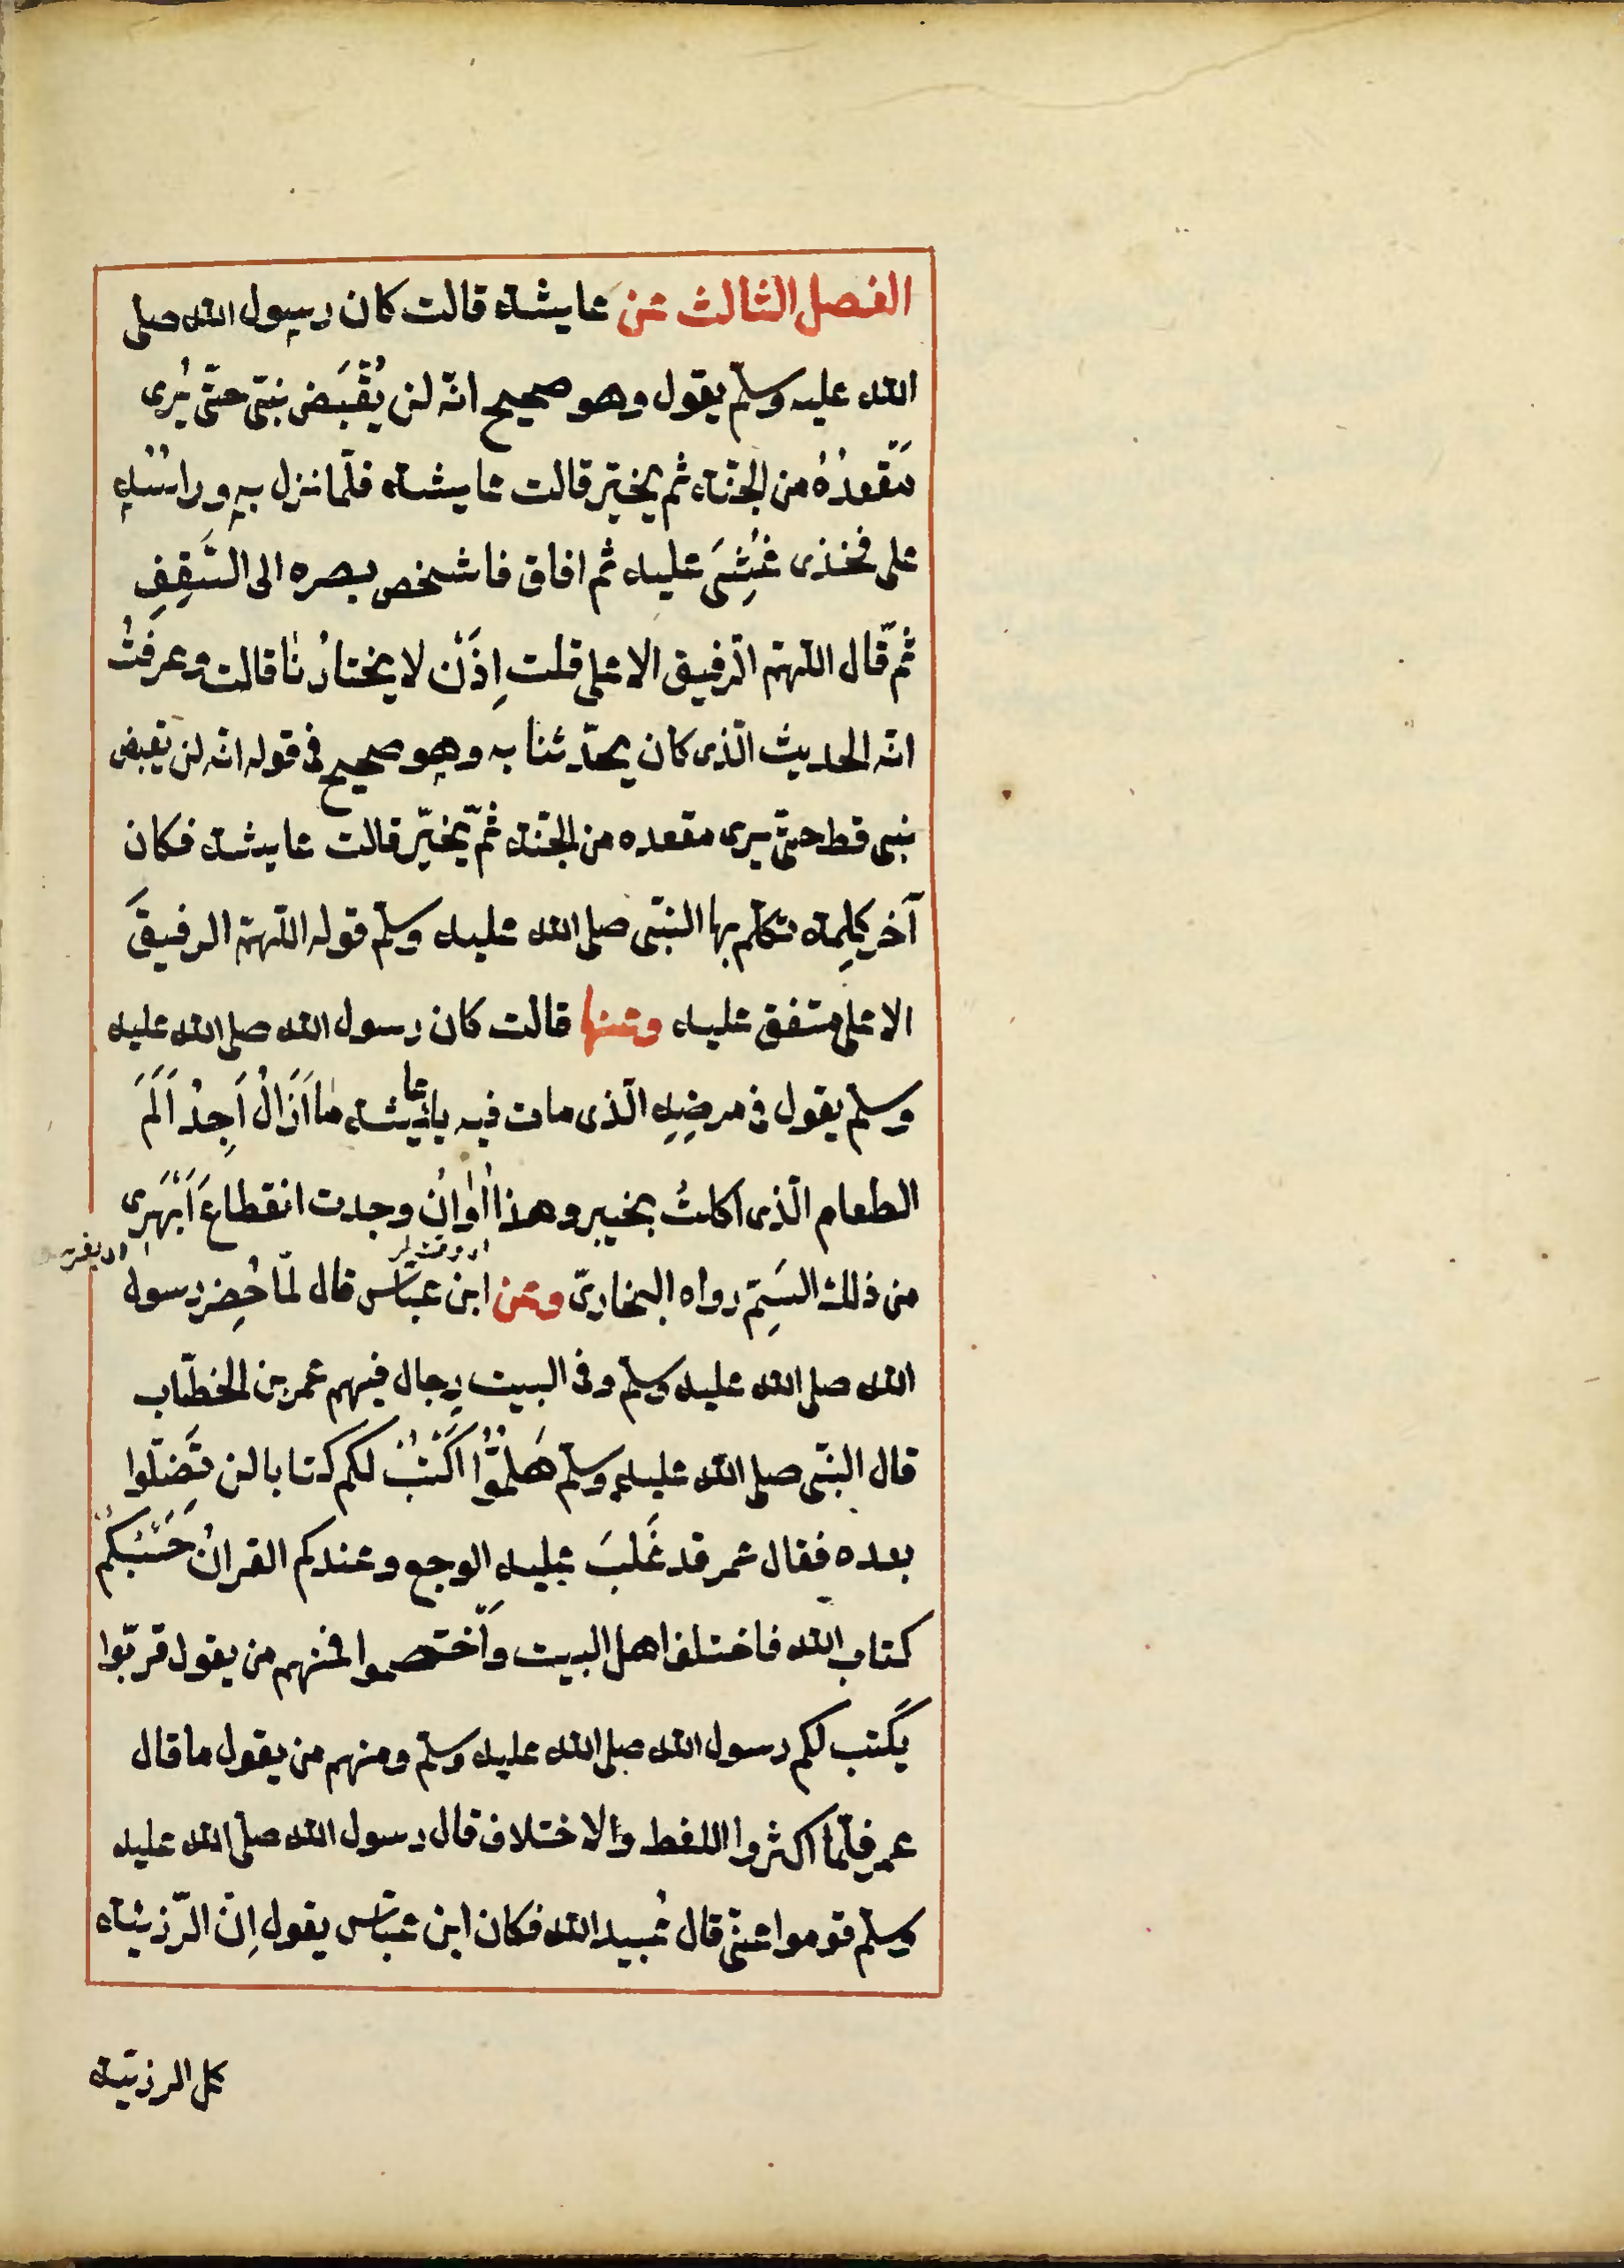 الفصل الثالث عن عايشة قالت كان رسول الله صلى
الله عليه وسلم يقول وهو صحيح انّه لن يُقْبَض نبىّ حتّى يُرى
مَقْعدُهُ من الجنّة ثم يخيّر قالت عايشة فلمّا نزل بهِ وراسُهُ
على فخذى غُشِىَ عليه ثم افاق فاشخص بصره الى السَّقفِ
ثمّ قال اللّهمّ الرّفيق الاعلى قلت اِذَنْ لا يختارُنا قالت وعرفتُ
انّه الحديث الّذى كان يحدّثنا به وهو صحيح فى قوله انّه لن يُقبض
نبى قط حتّى يرى مقعده من الجنّة ثمّ يُخيّر قالت عايشة فكان
آخر كلِمة تكلّم بها النبىّ صلى الله عليه وسلّم قوله اللّهمّ الرفيقَ
الاعلى متفق عليه وعنها قالت كان رسول الله صلى الله عليه
وسلم يقول فى مرضِهِ الّذى مات فيه يا عائيشة ما اَزَالُ اَجِدُ اَلَمَ
الطعام الّذى اكلتُ بخيبر وهذا اَوانُ وجدت انقطاعَ اَبْهَرِى
من ذلك السَّمِّ رواه البخارىّ وعن ابن عبّاس قال لمّا حُضِر رسول
الله صلى الله عليه وسلّم وفى البيت رِجال فيهم عمر بن الخطّاب
قال النبّى صلى الله عليه وسلّم هَلمُّوْا اَكْتُبْ لكم كتابا لن تَضلّوا
بعده فقال عمر قد غَلبَ عليهِ الوجع وعندكم القرانُ حَسْبُكُمْ
كتاب الله فاختلف اهل البيت وَاختصموا فمنهم من يقول قرّبوا
يَكتب لكم رسول الله صلى الله عليه وسلّم ومنهم من يقول ما قال
عمر فلّما اكثروا اللغط والاختلاف قال رسول الله صلّى الله عليه
وسلّم قوموا عنّى قال عُبيد الله فكان ابن عبّاس يقول اِنّ الرّزيّة
كل الرزيّة